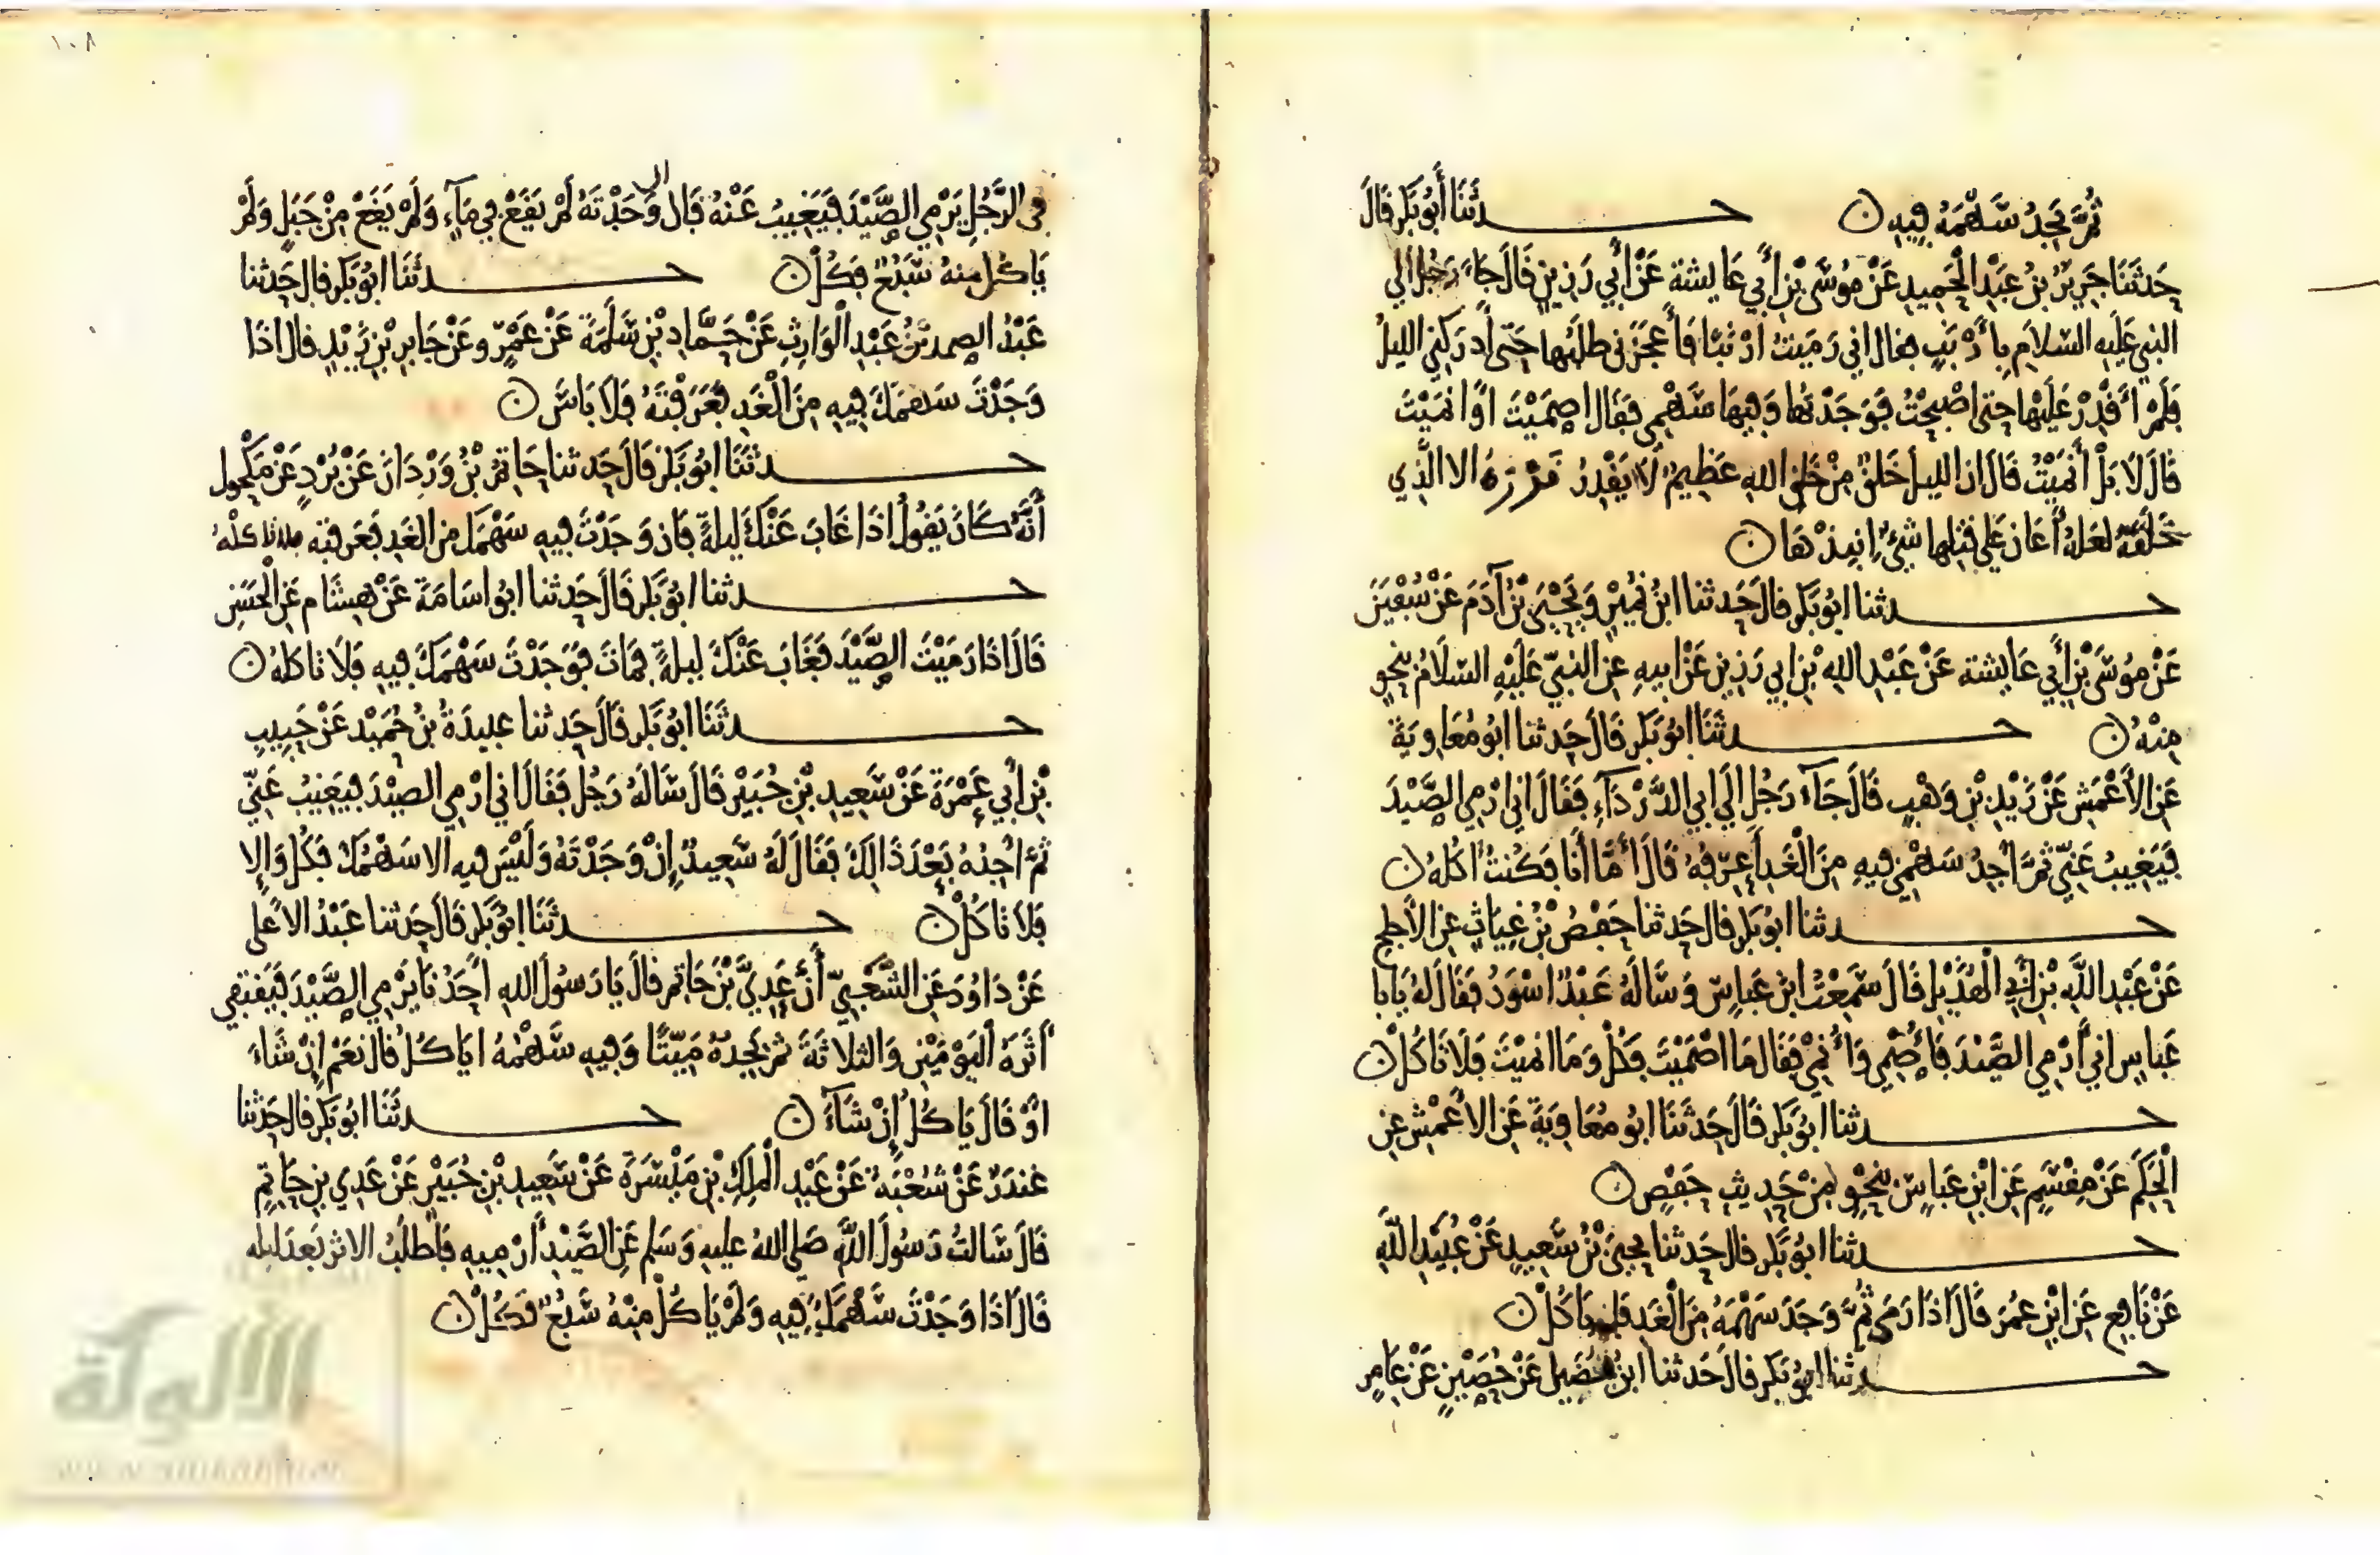 ثُمَّ يَجِدُ سَهْمَهُ فِيهِ ن حدثَنَا أَبُو بَكْرٍ قَالَ
حَدثَنَا جَرِيرُ بْنُ عَبْدِ الْحَمِيدِ عَنْ مُوسَى بْنِ أَبِي عَايِشة عَنْ أَبِي رَزِينٍ قَالَ جَاءَ رَجُل الى
النبي عَلَيْهِ السّلَامِ بِأَرْنَبٍ فقال اني رَمَيْتُ ارْنَبًا فَأَعجَزَني طلَبُها حَتى أَدرَكَنِي الليلُ
فَلَمْ أَقْدِرْ عَلَيْها حتى اصْبحْتُ فَوَجَدْتُها وَفِيهَا سَهْمِي فَقَالَ اصمَيْتَ اوْ انمَيْتَ
قَالَ لَا بَلْ أَنمَيْتُ قَالَ ان الليلَ خَلقٌ مِنْ خَلقِ اللهِ عَظِيمٌ لَا يَقْدِرُ قدره الا الَّذِي
خَلَقَهُ لعَلهُ أَعَانَ عَلى قتلِها شَيْءٌ انبِذْهَا ن
حدثنا ابُو بَكرٍ قالَ حَدثنا ابنُ نُمَيْرٍ وَيَحْيَى بْنُ آدَمَ عَنْ سُفْيَنَ
عَنْ مُوسَى بْنِ أَبِي عَايشة عَنْ عَبْدِ اللهِ بْنِ ابِي رَزِينٍ عَنْ ابيهِ عنِ النبيّ عَلَيْهِ السّلَامُ بِنَحْوٍ
مِنْهُ ن حدثَنَا ابُو بَكرٍ قَالَ حَدثنا ابُو مُعَاوِيَةَ
عَنِ الأَعْمَشِ عَنْ زَيْدِ بْنِ وَهْبٍ قَالَ جَآءَ رَجُل الَى ابِي الدَّرْدَآءِ فَقَالَ انِي ارْمِي الصَّيْدَ
فَيَغِيبُ عَنّي ثُمَّ أَجِدُ سَهْمِي فِيهِ مِنَ الْغَدِ أَعرِفُهُ قَالَ أَمَّا أَنَا فَكُنْتُ اكُلهُ ن
حدثنا ابُو بَكر قال حَدثنا حَفْصُ بْنُ غِيَاثٍ عنِ الأَجلحِ
عَنْ عَبْدِ اللَّهِ بْنِ أَبِي الْهُذَيْلِ قَالَ سَمِعْتُ ابن عَبَاسٍ وَسَأَلَهُ عَبْدٌ اسْوَدُ فَقَالَ لهُ يَابَا
عَبَاسٍ انِي أَرْمِي الصَّيْدَ فَأُصْمِي وَأُنْمِي فَقَالَ مَا اصْمَيْتَ فَكُلْ وَمَا انمَيْتَ فَلَا تَاكُلْ ن
حدثنا ابُو بَكرٍ قَالَ حَدثَنَا ابُو مُعَاوِيَةَ عَنِ الأَعْمَشِ عَنِ
الْحَكَمِ عَنْ مِقْسَمٍ عَنِ ابْنِ عَبَاسٍ بِنَحْوٍ مِنْ حَدِيثِ حَفْصٍ ن
حدثنا ابُو بَكر قال حَدثنا يحيَى بْنُ سَعِيدٍ عَنْ عُبَيْدِ اللَّهِ
عَنْ نَافِعٍ عَنِ ابْنِ عُمَرَ قَالَ اذَا رَمَى ثُمَّ وَجَدَ سَهْمَهُ مِنَ الْغَدِ يَاكُلْ ن
حدثنا ابُو بَكر قالَ حَدثنا ابْنُ فُضَيلٍ عَنْ حُصَيْنٍ عَنْ عَامِرٍ
١٠٨
فِى الرَّجُلِ يَرْمِي الصَّيْدَ فَيَغِيبُ عَنْهُ قَالَ وَجَدْتَهُ لَمْ يَقَعْ فِي مَآءٍ وَلَمْ يَقَعْ مِنْ جَبَلٍ وَلَمْ
يَاكُل منهُ سَبُعٌ فَكُلْ ن حدثَنَا ابُو بَكر قال حَدثنا
عَبْدُ الصمدِ بْنُ عَبْدِ الْوَارِثِ عَنْ حَمَّادِ بْنِ سَلَمَةَ عَنْ عَمْرٍو عَنْ جَابِرِ بْنِ زَيْدٍ قال اذَا
وَجَدْتَ سَهمَكَ فِيهِ مِنَ الْغَدِ فَعَرَفْتَهُ فَلَا بَاسَ ن
حدثَنَا ابُو بَكر قَالَ حَدثنا حَاتمُ بْنُ وَرْدَانَ عَنْ بُرْدٍ عَنْ مَكْحُولٍ
أَنَّهُ كَانَ يَقُولُ اذَا غَابَ عَنْكَ لَيلةً فَان وَجَدْتَ فِيهِ سَهْمَكَ مِن الغَدِ فَعَرَفته فلا تاكلْهُ
حدثنا ابُو بَكر قَالَ حَدثنا ابُو اسَامَةَ عَنْ هِشَامٍ عَنِ الْحَسَنِ
قَالَ اذَا رَمَيْتَ الصَّيْدَ فَغَابَ عَنْكَ لَيلةً فَمَاتَ فَوَجَدْتَ سَهْمَكَ فِيهِ فَلَا تَاكلهُ ن
حدثَنَا ابُو بَكر قَالَ حَدثنا عَبِيدَةُ بنُ حُمَيْدٍ عَنْ حَبِيبِ
بْنِ أَبِي عَمْرَةَ عَنْ سَعِيدِ بْنِ جُبَيْرٍ قَالَ سَالَهُ رَجُل فَقَالَ اني ارْمِي الصيْدَ فَيَغِيبُ عَنّي
ثمَّ اجِدُهُ بَعْدَ ذَالِكَ فَقَالَ لَهُ سَعِيدٌ إِنْ وَجَدْتَهُ وَلَيْسَ فِيهِ الا سَهْمُكَ فَكُلْ وَإِلا
فَلَا تَاكُلْ ن حدثَنَا ابُو بَكر قَالَ حَدثنا عَبْدُ الاعلى
عَنْ دَاوُدَ عَنِ الشَّعْبِيّ أَنَّ عَدِيَّ بْنَ حَاتِمٍ قَالَ يَا رَسُولَ اللهِ أَحَدُنَا يَرْمِي الصَّيْدَ فَيَقتفِي
أَثَرَهُ الْيَوْمَيْنِ وَالثلاثَةَ ثمَّ يَجِدُهُ مَيِّتًا وَفِيهِ سَهْمُهُ ايَاكُلُ قال نَعَمْ إِنْ شَاءَ
اوْ قَالَ يَاكُلُ إِنْ شَآءَ ن حدثَنَا ابُو بَكر قال حَدثنا
غندَرٌ عَنْ شُعْبَةَ عَنْ عَبْدِ الْمَلِكِ بْنِ مَيْسَرَةَ عَنْ سَعِيدِ بْنِ جُبَيْرٍ عَنْ عَدِي بنِ حَاتِمٍ
قَالَ سَالتُ رَسُولَ اللَّهِ صَلى اللهُ عليهِ وَسَلم عَنِ الصَّيْدِ أَرْمِيهِ فَاطلُبُ الاثرَ بَعدَ ليله
قَالَ اذَا وَجَدْتَ سَهْمَكَ فِيهِ وَلَمْ يَاكُلْ مِنْهُ سَبُعٌ فَكُلْ ن
الألوكة